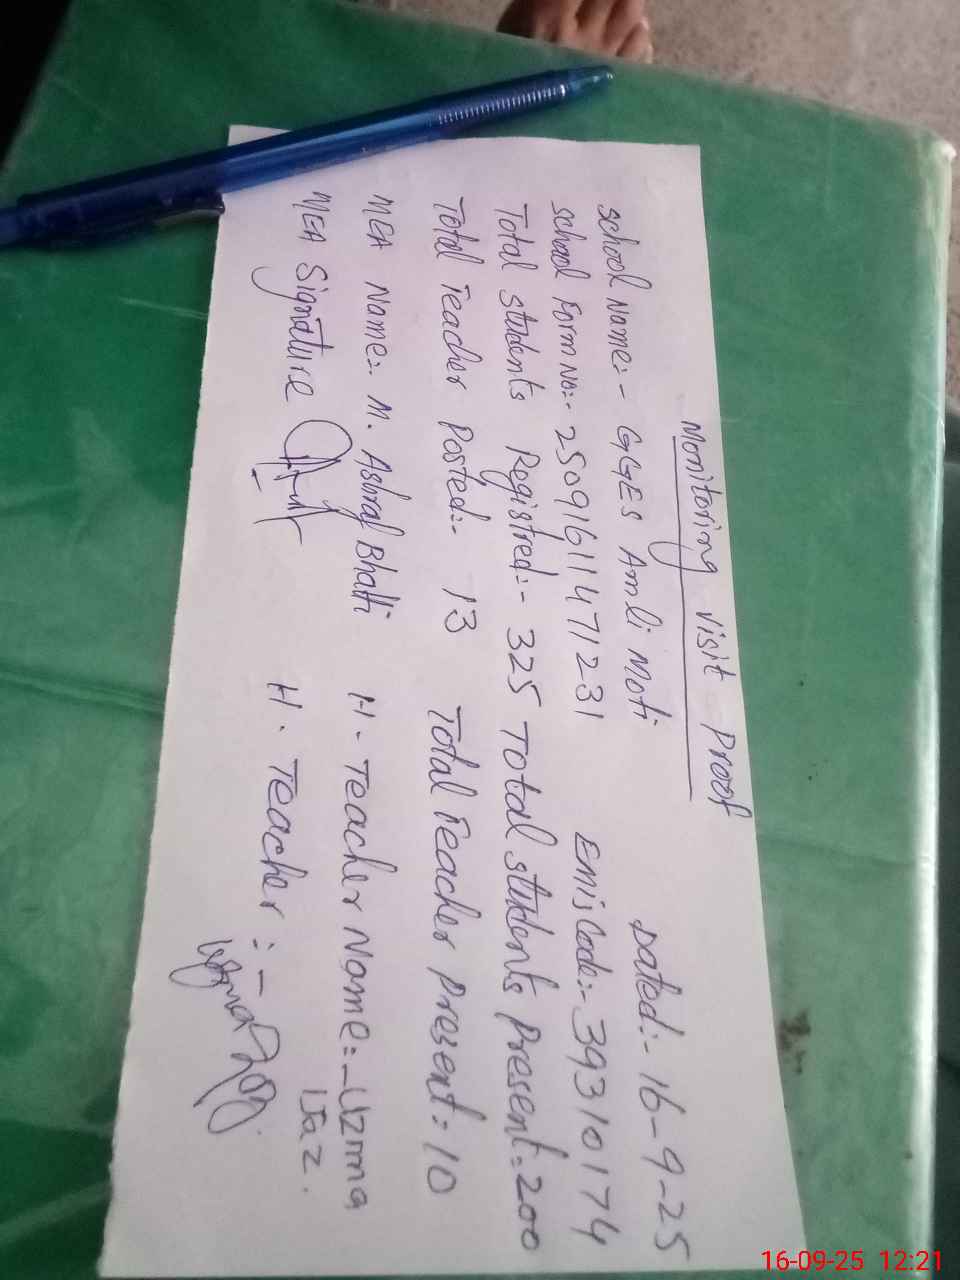 Monitoring visit Proof
Dated:- 16-9-25
School Name:- GGES Amli Moti
School Form No:- 25091611471231 Emis Code:- 39310174
Total students Registred:- 325 Total students Present:- 200
Total Teacher Posted:- 13 Total Teacher Present:- 10
MEA Name:- M. Ashraf Bhatti H. Teacher Name:- Uzma Ijaz.
MEA Signature H. Teacher :-
16-09-25 12:21